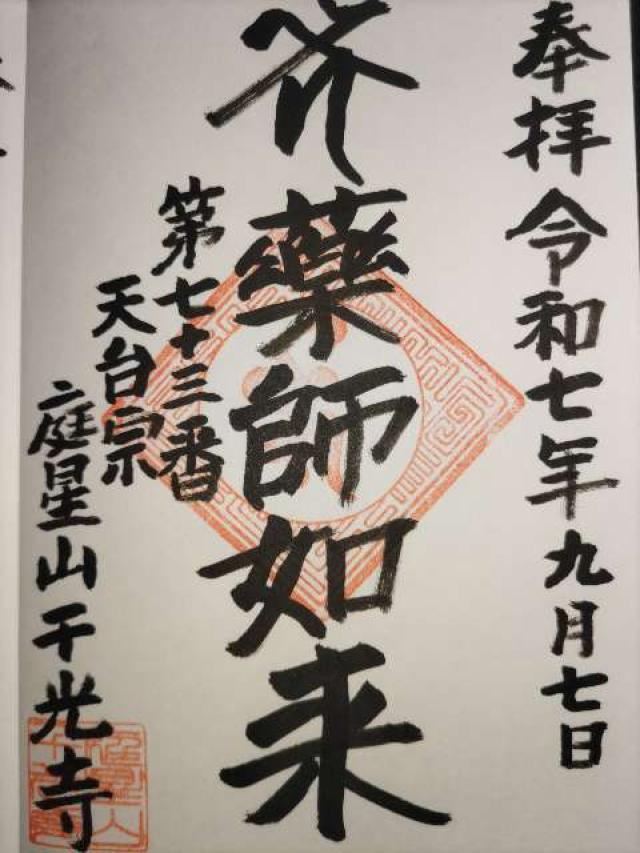 奉拝 令和七年九月七日
藥師如来
第七十三番
天台宗
庭星山千光寺